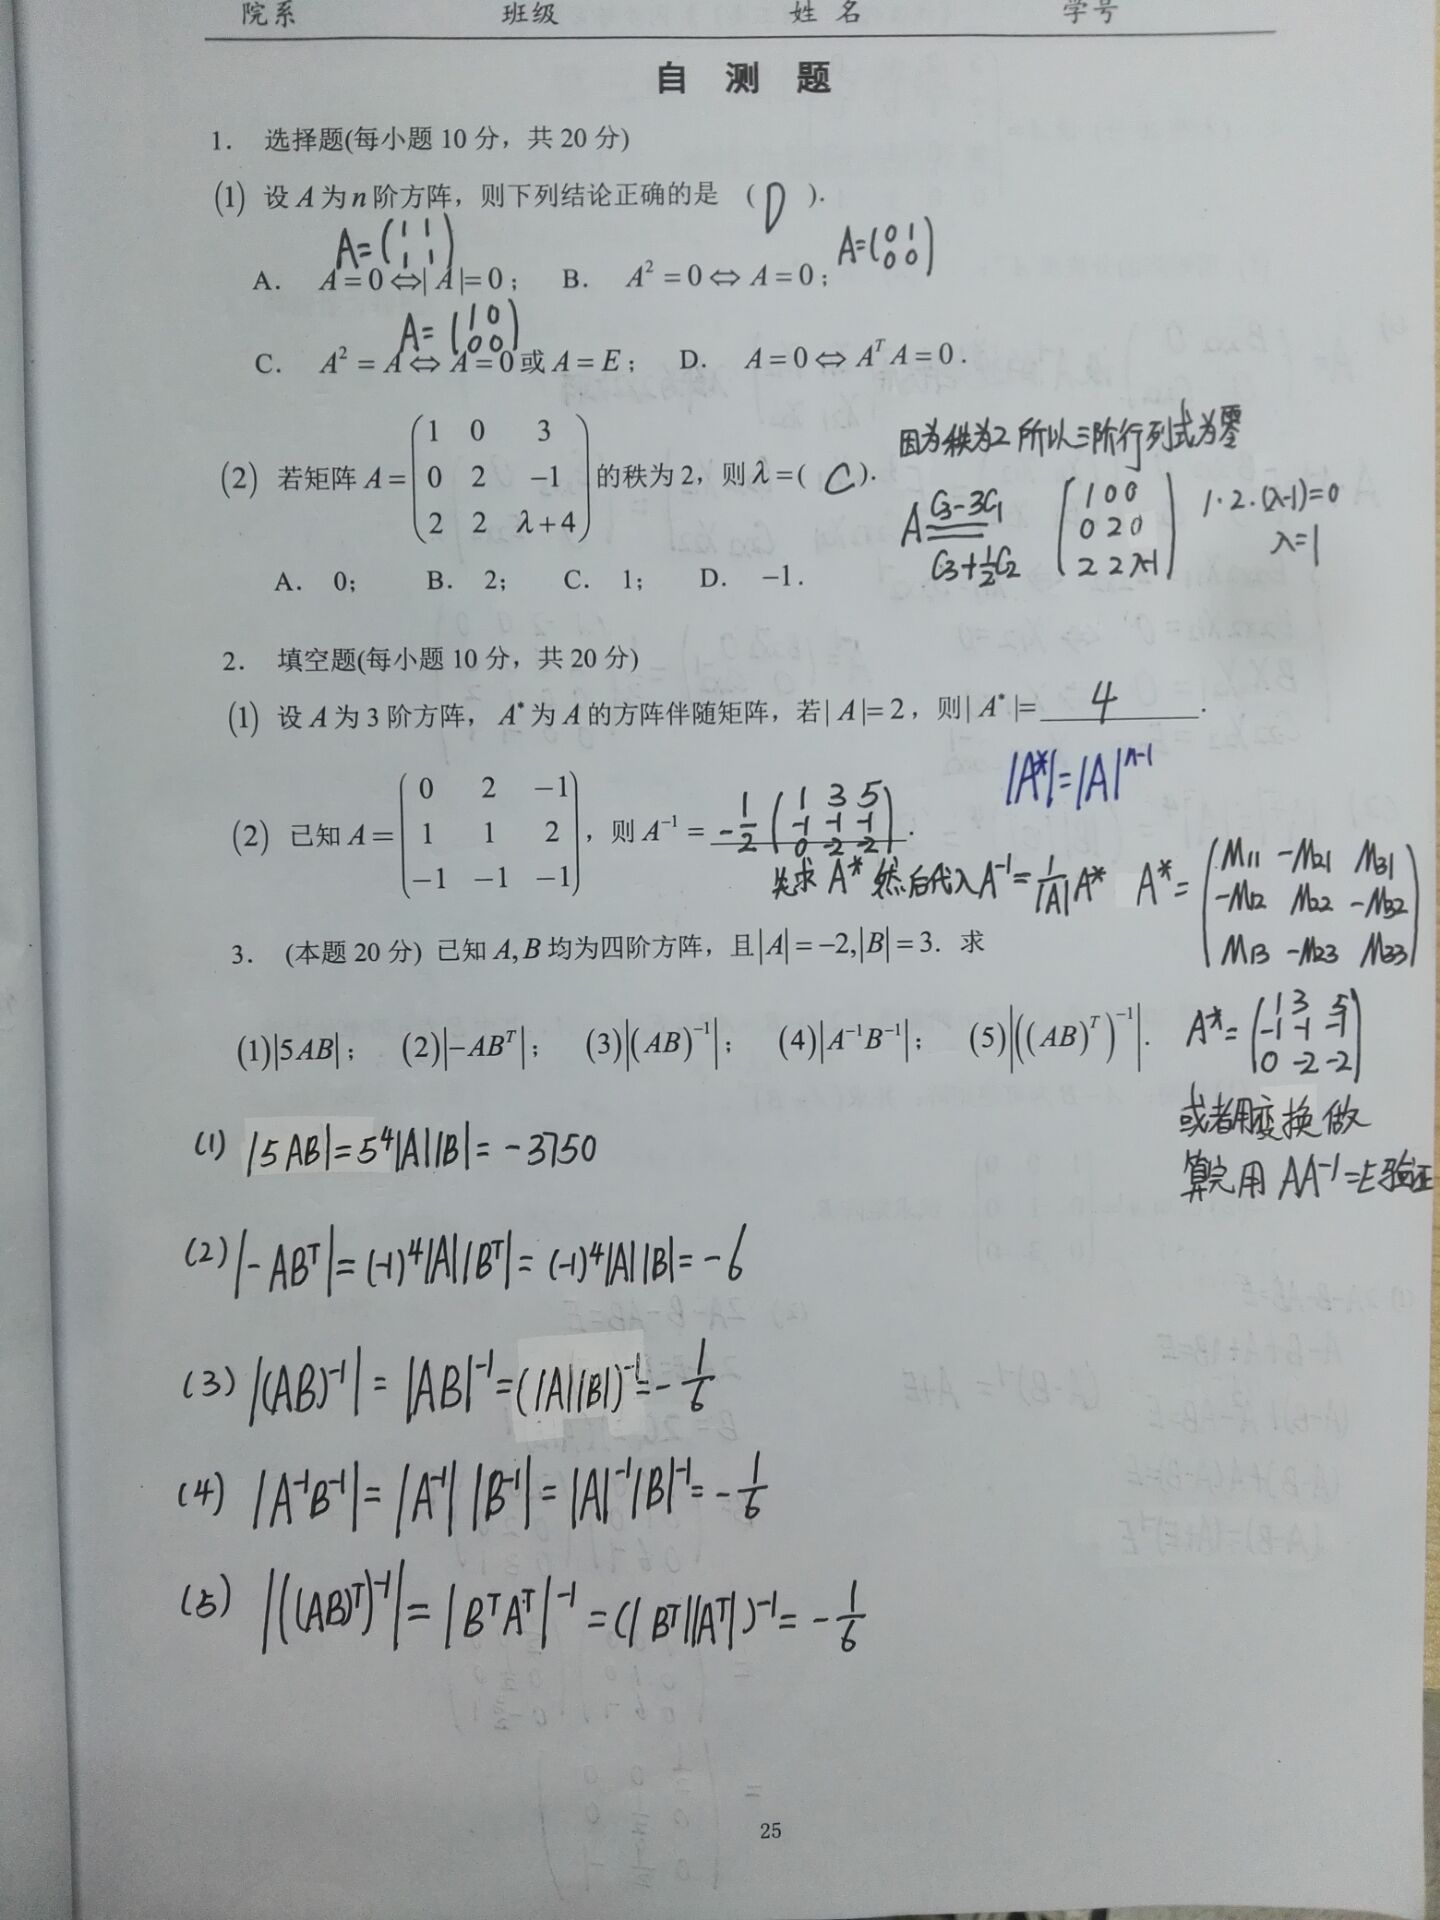 院系 班级 姓名 学号
自 测 题
1. 选择题(每小题 10 分，共 20 分)
(1) 设 A 为 n 阶方阵，则下列结论正确的是 ( D ).
A=(1 1; 1 1) A=(0 1; 0 0)
A. A=0⇔|A|=0； B. A²=0⇔A=0；
A=(1 0; 0 0)
C. A²=A⇔A=0或A=E； D. A=0⇔AᵀA=0.
(2) 若矩阵 A=(1 0 3; 0 2 −1; 2 2 λ+4) 的秩为 2，则 λ=( C ).
因为秩为2 所以三阶行列式为零
A C₃-3C₁ C₃+½C₂ [1 0 0; 0 2 0; 2 2 λ-1] 1·2·(λ-1)=0
λ=1
A. 0； B. 2； C. 1； D. −1.
2. 填空题(每小题 10 分，共 20 分)
(1) 设 A 为 3 阶方阵，A* 为 A 的方阵伴随矩阵，若|A|=2，则|A*|= 4 .
|A*|=|A|ⁿ⁻¹
(2) 已知 A=(0 2 −1; 1 1 2; −1 −1 −1)，则 A⁻¹= -1/2 (1 3 5; -1 -1 -1; 0 -2 -2) .
先求 A* 然后代入 A⁻¹=1/|A| A* A*=(M11 -M21 M31; -M12 M22 -M32; M13 -M23 M33)
3. (本题 20 分) 已知 A,B 均为四阶方阵，且|A|=−2,|B|=3. 求
(1)|5AB|； (2)|−ABᵀ|； (3)|(AB)⁻¹|； (4)|A⁻¹B⁻¹|； (5)|((AB)ᵀ)⁻¹|.
A*=(1 3 5; -1 -1 -1; 0 -2 -2)
或者用变换做
算完用 AA⁻¹=E验证
(1) |5AB|=5⁴|A||B|=-3750
(2) |-ABᵀ|=(-1)⁴|A||Bᵀ|=(-1)⁴|A||B|=-6
(3) |(AB)⁻¹|=|AB|⁻¹=(|A||B|)⁻¹=-1/6
(4) |A⁻¹B⁻¹|=|A⁻¹||B⁻¹|=|A|⁻¹|B|⁻¹=-1/6
(5) |((AB)ᵀ)⁻¹|=|BᵀAᵀ|⁻¹=(|Bᵀ||Aᵀ|)⁻¹=-1/6
25